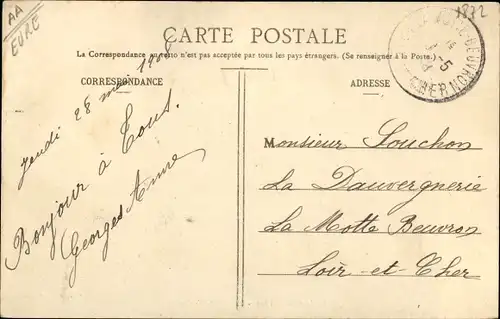 AA
EURE
1872
CARTE POSTALE
La Correspondance au recto n'est pas acceptée par tous les pays étrangers. (Se renseigner à la Poste).
CORRESPONDANCE
ADRESSE
Jeudi 28 mai 1908
Bonjour à Tous.
Georges
Monsieur Souchon
La Dauvergnerie
La Motte Beuvron
Loir-et-Cher